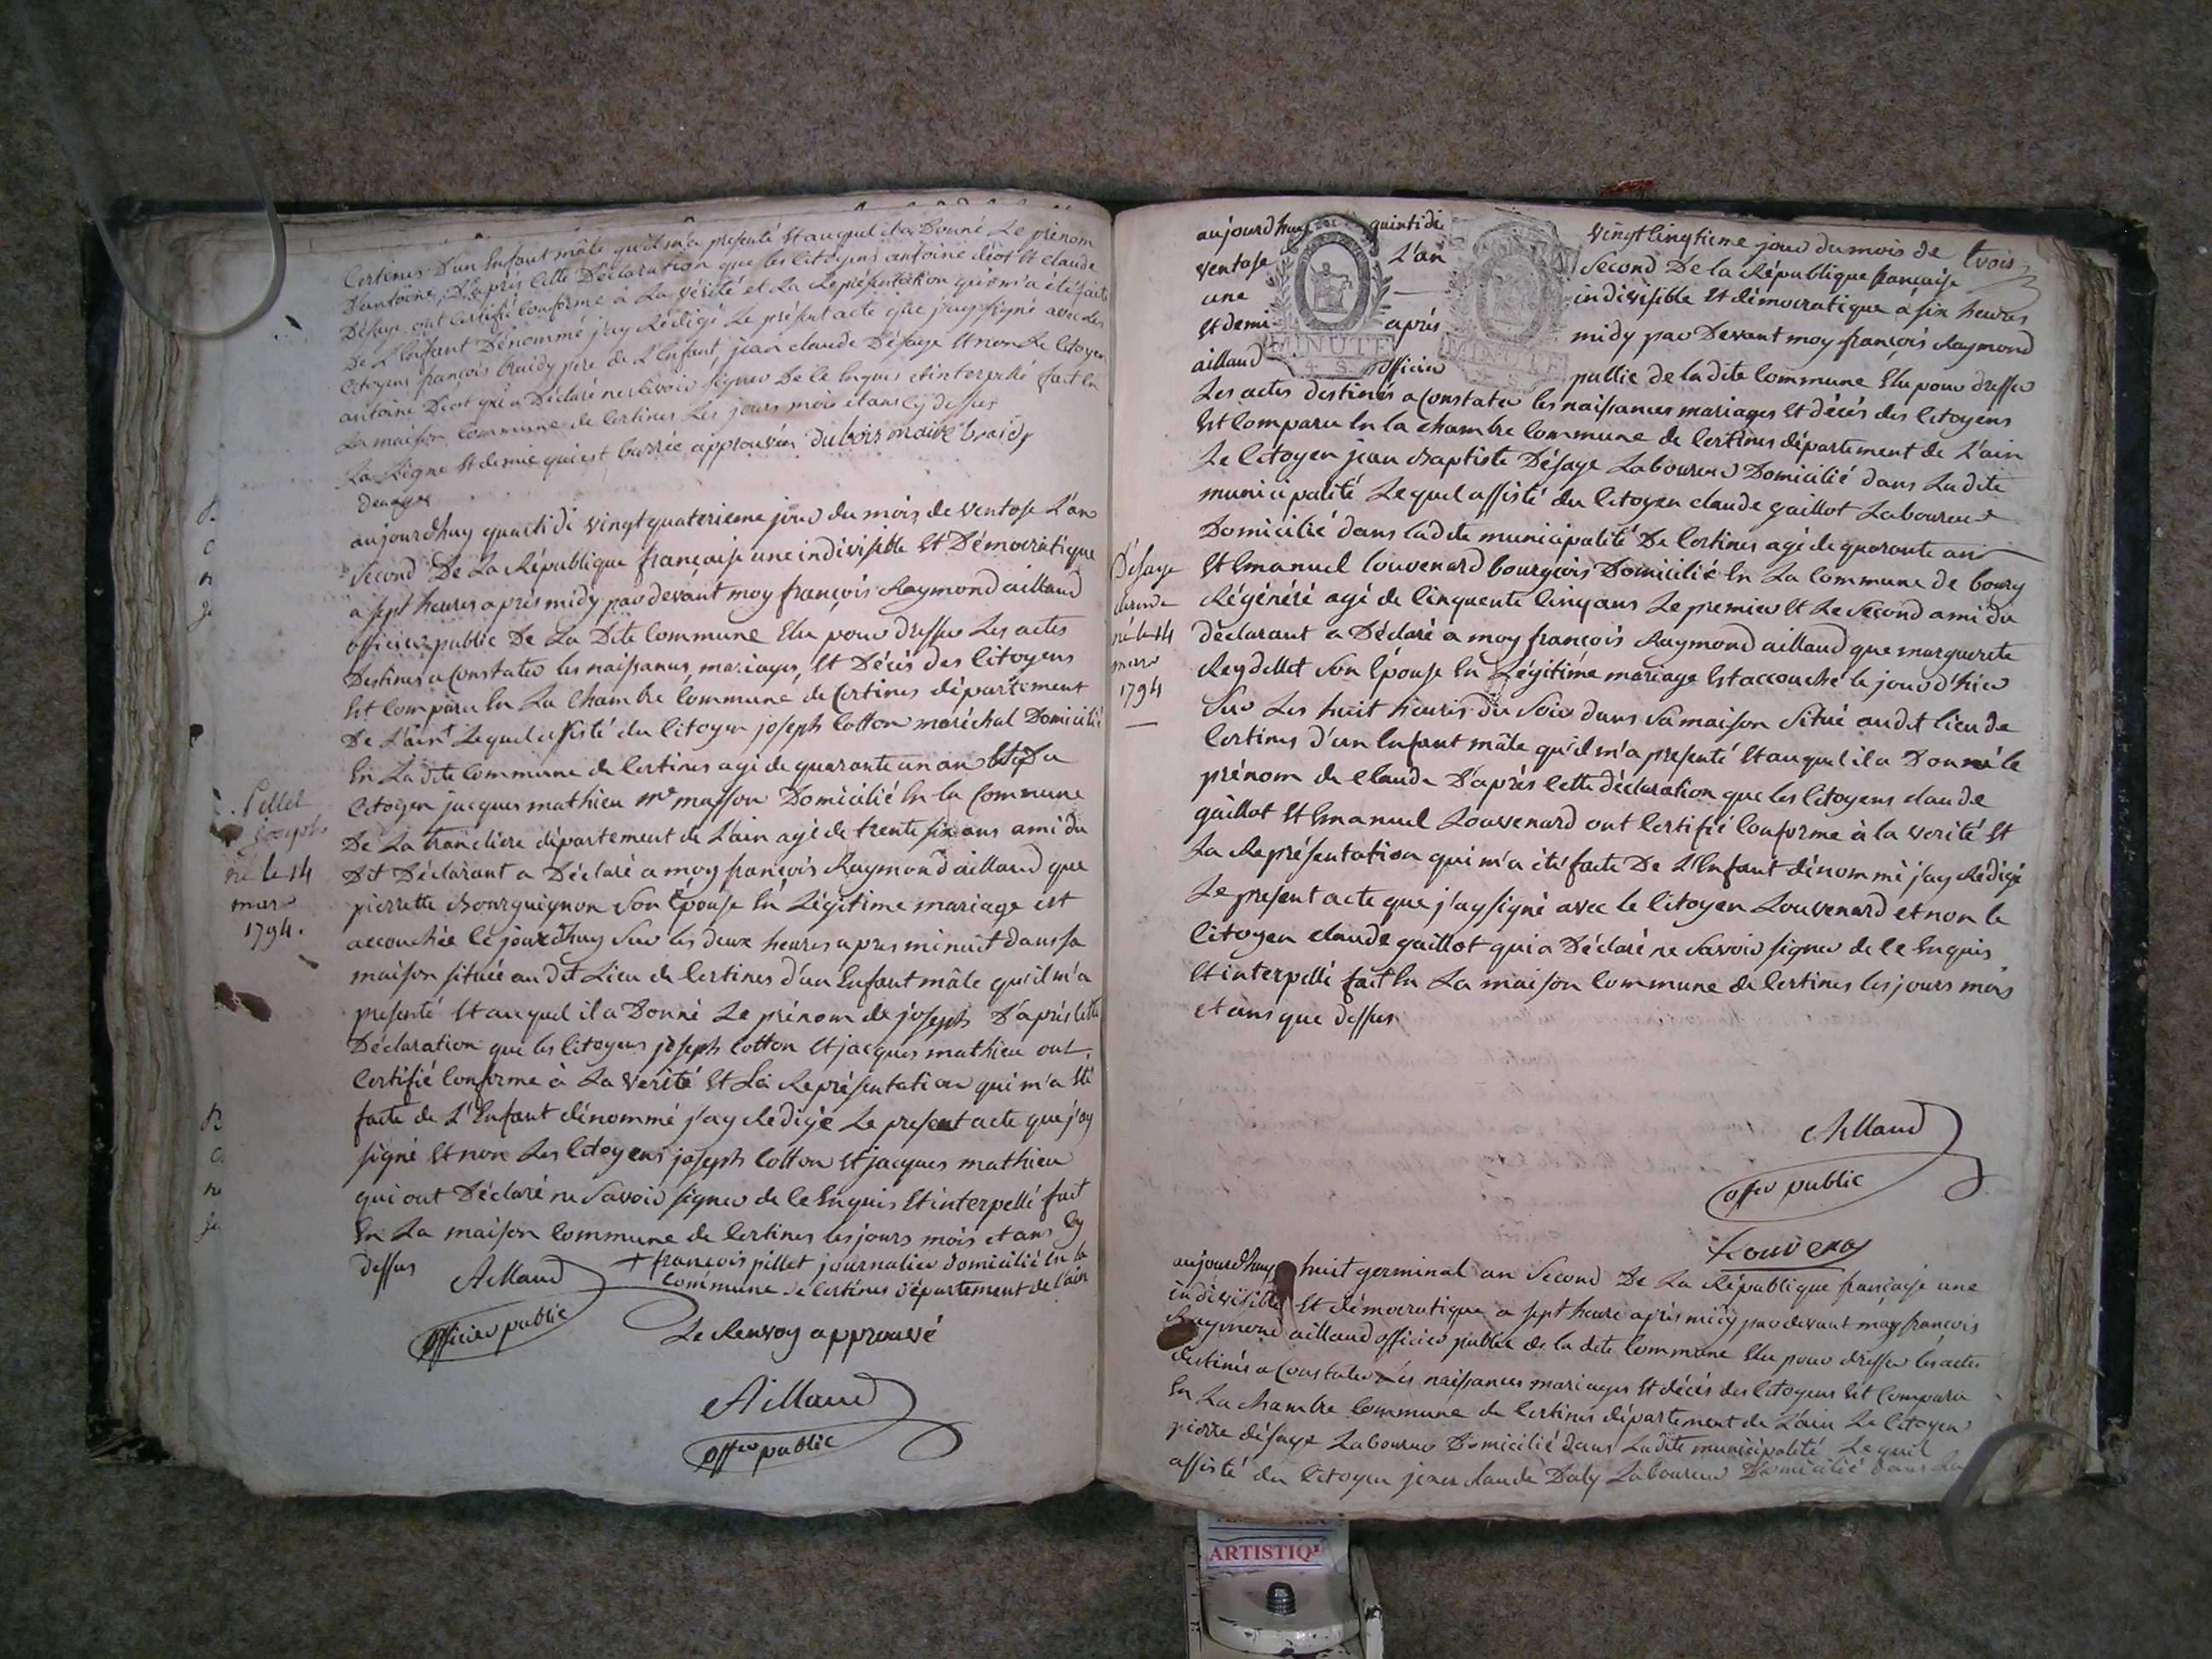 Certines D'un Enfant mâle qu'il m'a presenté Et auquel il a Donné Le prénom
D'antoine, D'après Cette Déclaration que les Citoyens antoine déot Et claude
Désage ont Certifié Conforme à La vérité et La Représentation qui m'a été faite
De L'Enfant Dénommé j'ay Rédigé Le présent acte que j'ay signé avec les
Citoyens françois braidy pere de L'Enfant, jean claude Désage Et non Le Citoyen
antoine Déot qui a Déclaré ne Savoir signer De Ce Enquis et interpellé fait En
La maison Commune de Certines Les jours mois et ans cy dessus
La Ligne Et demie qui est barrée approuvée dubois maire braidy
desage
aujourdhuy quartidi vingt quaterieme jour du mois de ventose L'an
Second De La République française une indivisible Et Démocratique
a sept heures après midy par devant moy françois Raymond aillaud
officier public De La Dite Commune Elu pour dresser Les actes
Destinés a Constater les naissances, mariages, Et Décès des Citoyens
Est Comparu En La Chambre Commune de Certines département
De L'ain + Lequel assisté du Citoyen joseph Cotton maréchal Domicilié
En La dite Commune de Certines agé de quarante un an Et Du
Citoyen jacques mathieu me masson Domicilié En la Commune
De La tranclière département de L'ain agé de trente six ans ami du
Dit Déclarant a Déclaré a moy françois Raymond aillaud que
pierrette Bourguignon Son Épouse En Légitime mariage est
accouchée le jourdhuy Sur les deux heures apres minuit dans sa
maison située au dit Lieu de Certines d'un Enfant mâle qu'il m'a
presenté Et auquel il a Donné Le prénom de joseph D'après Cette
Déclaration que les Citoyens joseph Cotton Et jacques mathieu ont
Certifié Conforme à La vérité Et La Représentation qui m'a été
faite de L'Enfant dénommé j'ay Rédigé Le present acte que j'ay
signé Et non Les Citoyens joseph Cotton Et jacques mathieu
qui ont Déclaré ne Savoir signer de Ce Enquis Et interpellé fait
En La maison Commune de Certines les jours mois et ans cy
dessus Aillaud + françois pillet journalier domicilié En la
Commune de Certines département de l'ain
officier public Le Renvoy approuvé
Aillaud
offer public
Pillet
joseph
né le 14
mars
1794.
aujourdhuy quintidi vingt Cinqtieme jour du mois de trois
ventose L'an Second De la République française
une indivisible Et démocratique a six heures
Et demi après midy par Devant moy françois Raymond
aillaud officier public de la dite Commune Elu pour dresser
MINUTE
4 S.
MINUTE
4 S.
Les actes destinés a Constater les naissances mariages Et décès des Citoyens
Est Comparu En la chambre Commune de Certines département de L'ain
Le Citoyen jean Baptiste Désage Laboureur Domicilié dans La dite
municipalité Lequel assisté du Citoyen claude gaillot Laboureur
Domicilié dans ladite municipalité De Certines agé de quarante an
Et Emanuel Louvenard bourgeois Domicilié En La Commune de bourg
Régénéré agé de Cinquente Cinq ans Le premier Et Le Second ami du
déclarant a Déclaré a moy françois Raymond aillaud que marguerete
Reydellet Son Épouse En Légitime mariage Est accouché le jour d'hier
Sur Les huit heures du Soir dans Sa maison Situé audit lieu de
Certines d'un Enfant mâle qu'il m'a presenté Et auquel il a Donné le
prénom de Claude D'après Cette déclaration que les Citoyens claude
gaillot Et Emanuel Louvenard ont Certifié Conforme à la verité Et
La Représentation qui m'a été faite De L'Enfant dénommé j'ay Rédigé
Le present acte que j'ay signé avec le Citoyen Louvenard et non le
Citoyen claude gaillot qui a Déclaré ne Savoir signer de Ce Enquis
Et interpellé fait En La maison Commune de Certines les jours mois
et ans que dessus
Désage
claude
né le 14
mars
1794
Aillaud
offer public
aujourdhuy huit germinal an Second De La République française une
indivisible Et démocratique a sept heure après midy par devant moy françois
Raymond aillaud officier public de la dite Commune Elu pour dresser les actes
destinés a Constater Les naissances mariages Et décès des Citoyens Est Comparu
En La chambre Commune de Certines département de L'ain Le Citoyen
pierre désage Laboureur Domicilié dans Ladite municipalité Lequel
assisté du Citoyen jean claude Daly Laboureur Domicilié dans La
ARTISTIQ